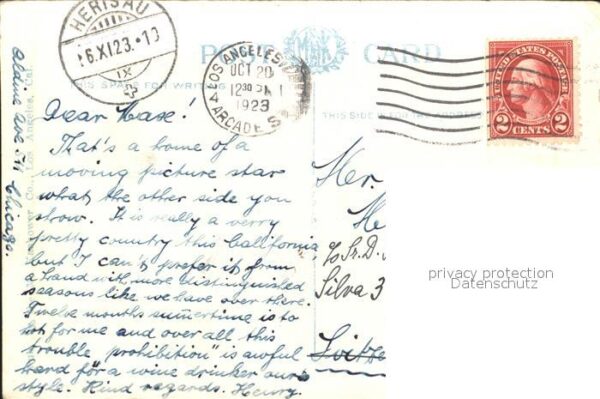 HERISAU
6.XI.23.-10
IX
POST CARD
LOS ANGELES
OCT 20
1230 PM
1923
ARCADE S
UNITED STATES POSTAGE
2 CENTS 2
THIS SPACE FOR WRITING
THIS SIDE IS FOR THE ADDRESS
Ave
Chicago.
Los Angeles, Cal.
Dear Maxe!
That's a home of a
moving picture star
what the other side you
show. It is really a verry
pretty country this California,
but I can't prefer it from
a land with more distinguished
seasons like we have over there.
Twelve months summertime is to
hot for me and over all this
trouble "prohibition" is awful
hard for a wine drinker our
style. Kind regards. Henry.
Mr.
c/o Sr. D.
Silva 3
privacy protection
Datenschutz